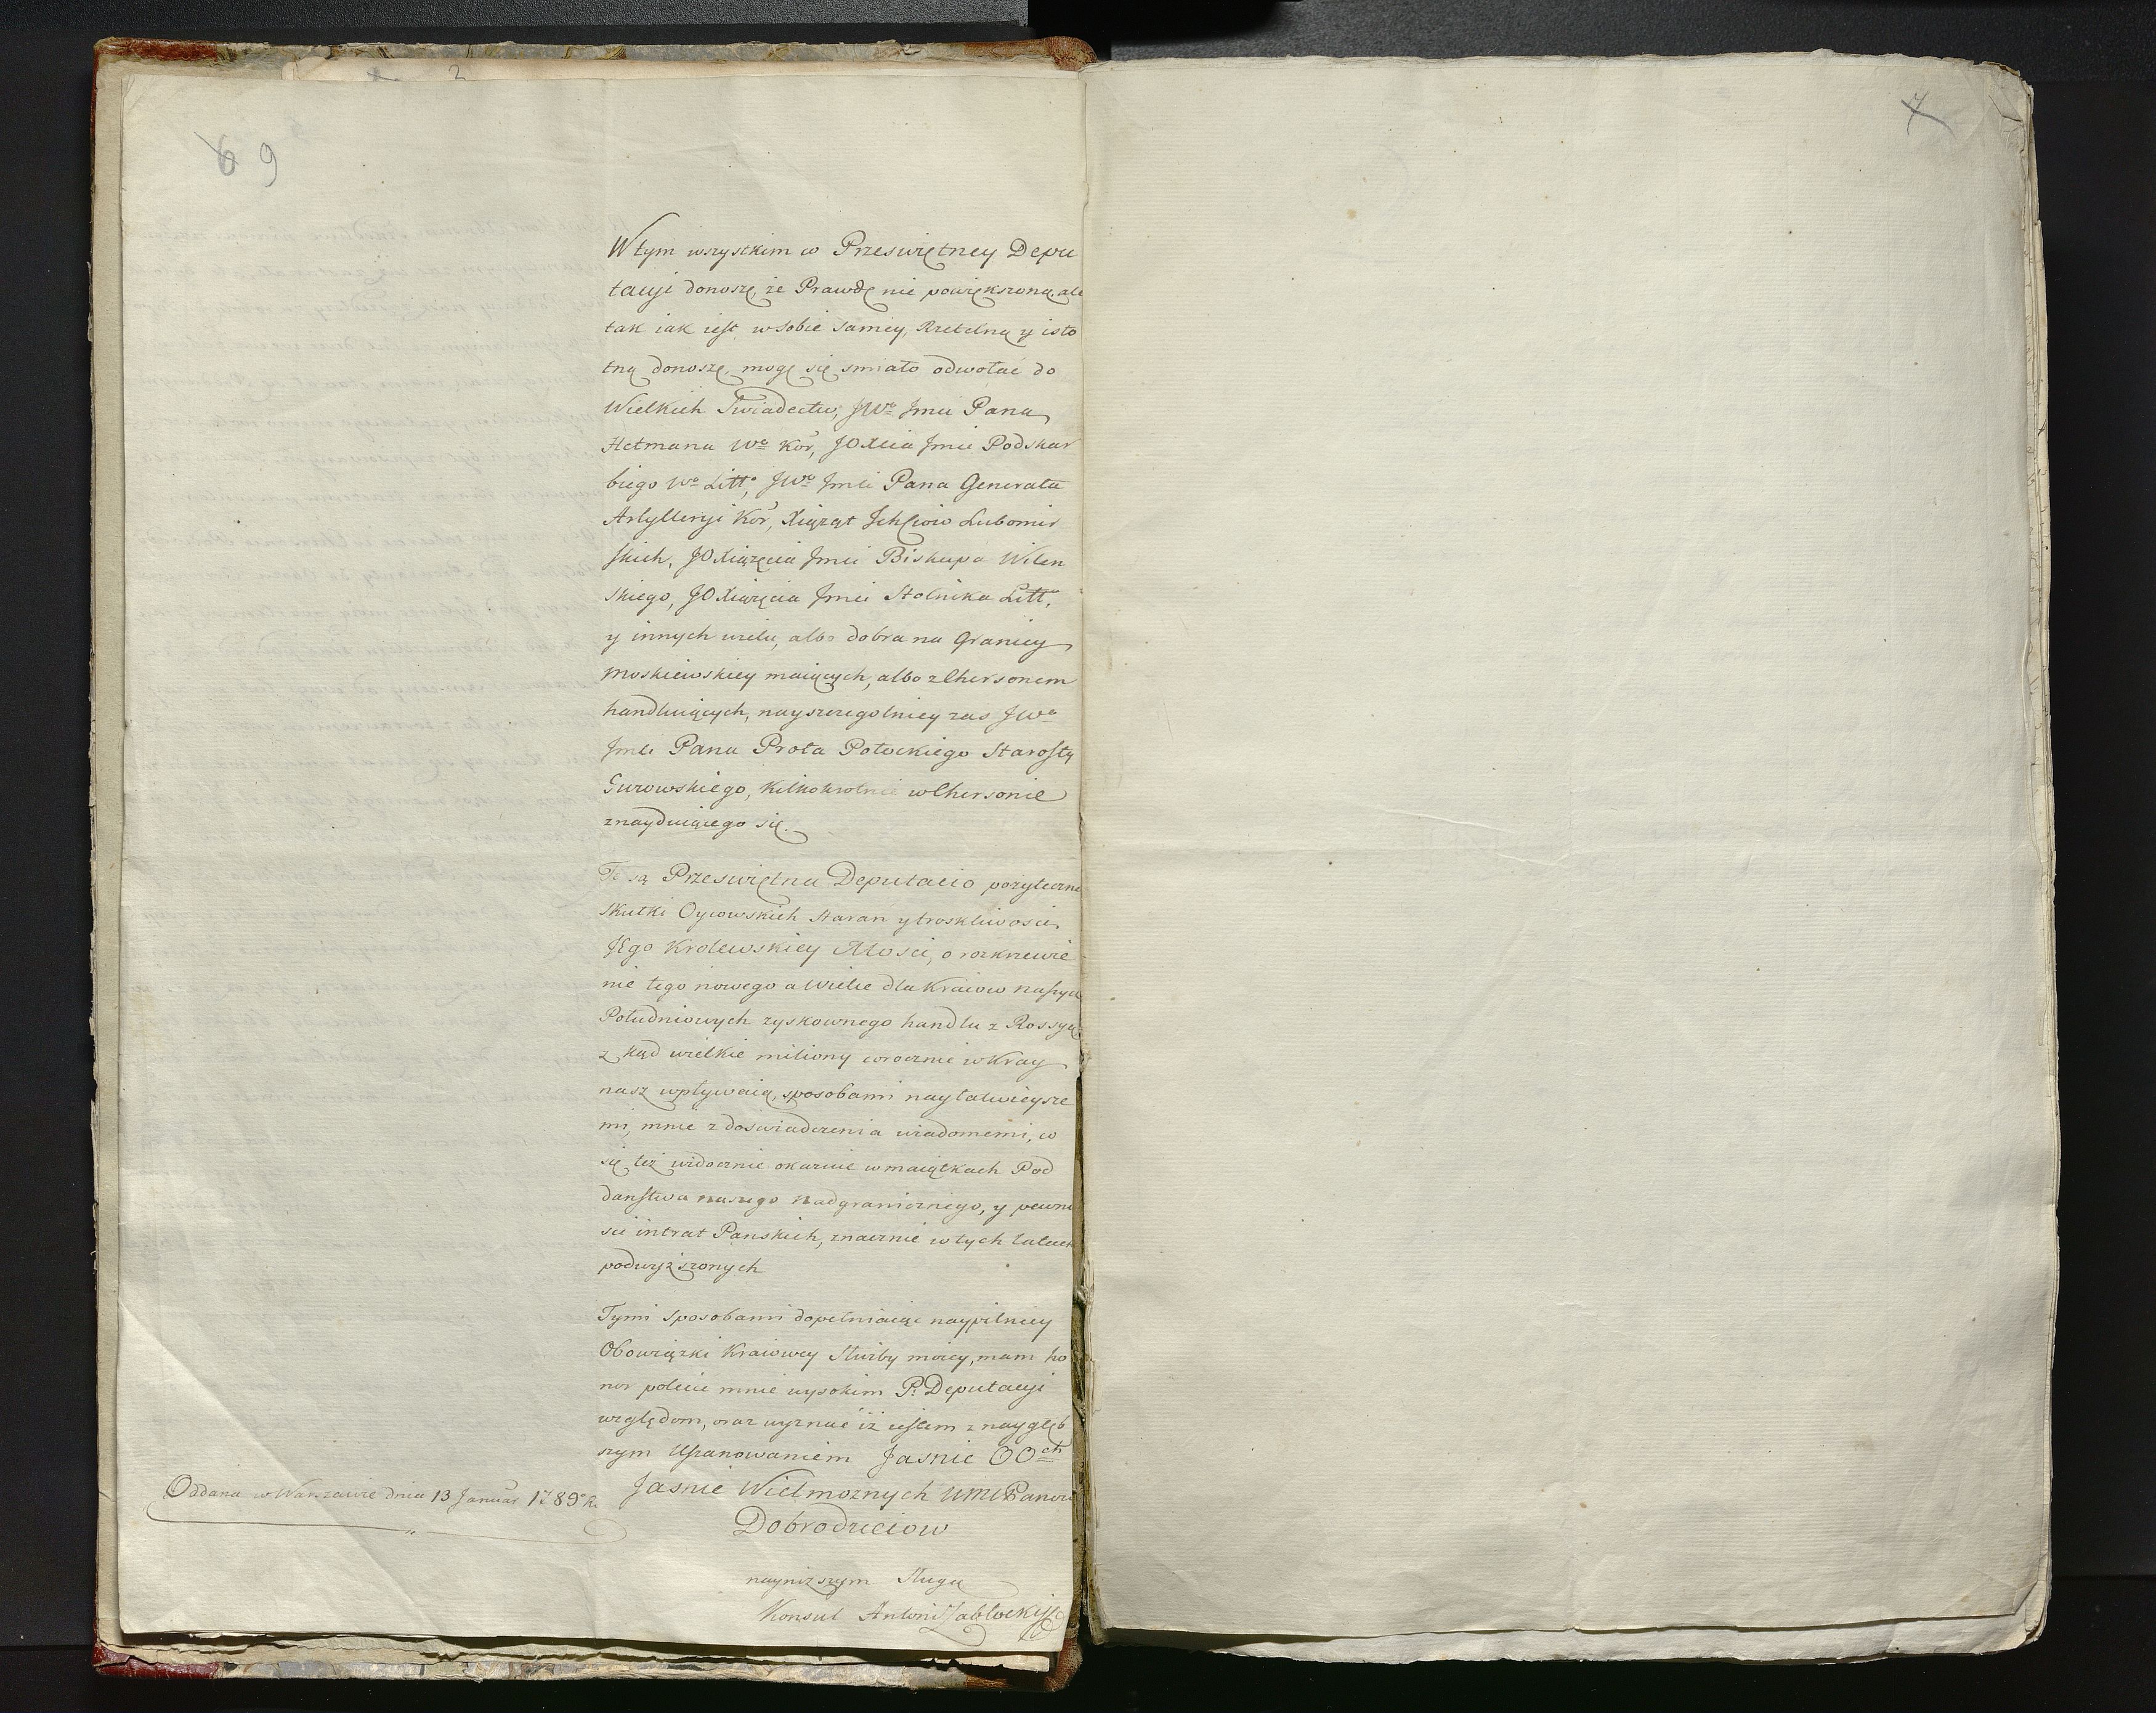 2
6 9
7
W tym wszystkim co Przeswiętney Depu
tacyi donoszę, że Prawdę nie powiększoną, ale
tak iak iest w sobie samey, Rzetelną y isto
tną donoszę, mogę się smiało odwołać do
Wielkich Swiadectw, JWo Jmci Pana
Hetmana Wo Kor, JOXcia Jmci Podskar
biego Wo Litto, JWo Jmci Pana Generała
Artylleryi Kor, Xiążąt Ichciow Lubomir
skich, JOXiązęcia Jmci Biskupa Wilen
skiego, JOXiązęcia Jmci Stolnika Litt,
y innych wielu, albo dobra na Granicy
Moskiewskiey maiących, albo z Chersonem
handluiących, nayszczegolniey zas JWo
Jmci Pana Prota Potockiego Starostę
Gurowskiego, Kilkokrotnie w Chersonie
znayduiącego się.
Te są Przeswiętna Deputacio pożyteczne
skutki Oycowskich staran y troskliwosci
JEgo Krolewskiey Mosci, o rozkrzewie
nie tego nowego a Wielce dla Kraiow naszych
Południowych zyskownego handlu z Rossyą
z kąd wielkie miliony corocznie w Kray
nasz wpływaią, sposobami nayłatwieysze
mi, mnie z doswiadczenia wiadomemi, co
się też widocznie okazuie w maiątkach Pod
danstwa naszego Nadgranicznego, y pewno
sci intrat Panskich, znacznie w tych latach
podwyższonych
Tymi sposobami dopełniaiąc naypilniey
Obowiązki Kraiowey Służby moiey, mam ho
nor polecić mnie wysokim P. Deputacyi
względom, oraz wyznać iż iestem z naygłęb
szym Uszanowaniem Jasnie OOch
Jasnie Wielmożnych WMC Panow
Dobrodzieiow
Oddana w Warszawie dnia 13 Januar 1789o R.
nayniższym Sługą
Konsul Antoni Zabłocki